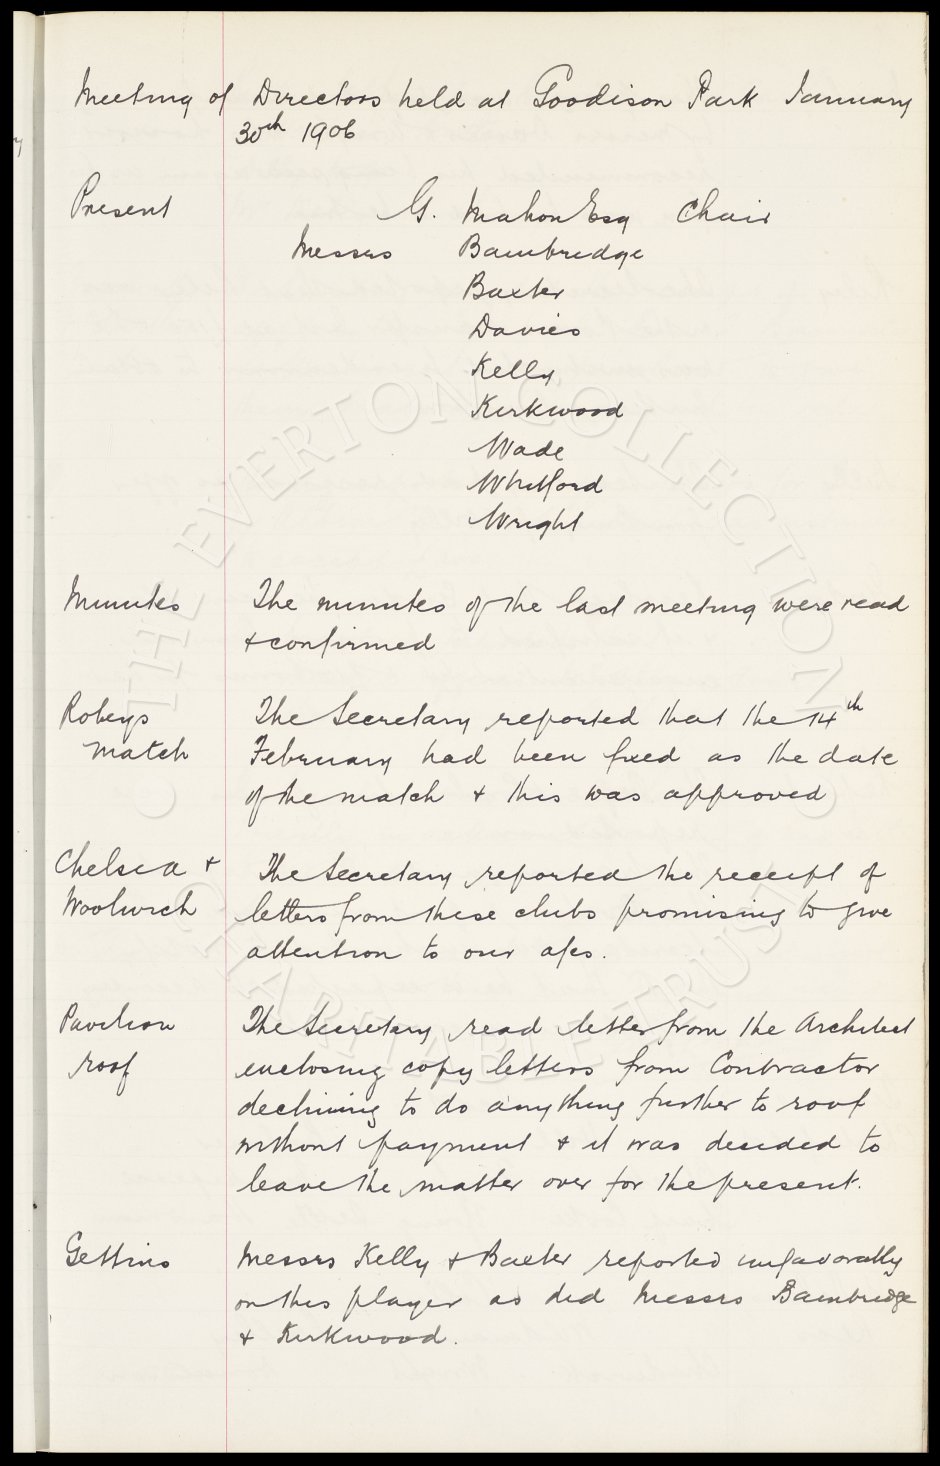 Meeting of Directors held at Goodison Park January
30th 1906
Present G. Mahon Esq Chair
Messrs Bambridge
Baxter
Davies
Kelly
Kirkwood
Wade
Whitford
Wright
Minutes The minutes of the last meeting were read
& confirmed
Robeys The Secretary reported that the 14th
match February had been fixed as the date
of the match & this was approved
Chelsea & The Secretary reported the receipt of
Woolwich letters from these clubs promising to give
attention to our a/cs.
Pavilion The Secretary read letter from the Architect
roof enclosing copy letters from Contractor
declining to do anything further to roof
without payment & it was decided to
leave the matter over for the present.
Gettins Messrs Kelly & Baxter reported unfavorably
on this player as did Messrs Bambridge
& Kirkwood.
© THE EVERTON COLLECTION
CHARITABLE TRUST ©